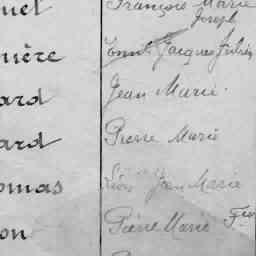 uel François Marie
Joseph
uère Jacques Julien
ard Jean Marie.
ard Pierre Marie
omas Léon Jean Marie
on Pierre Marie